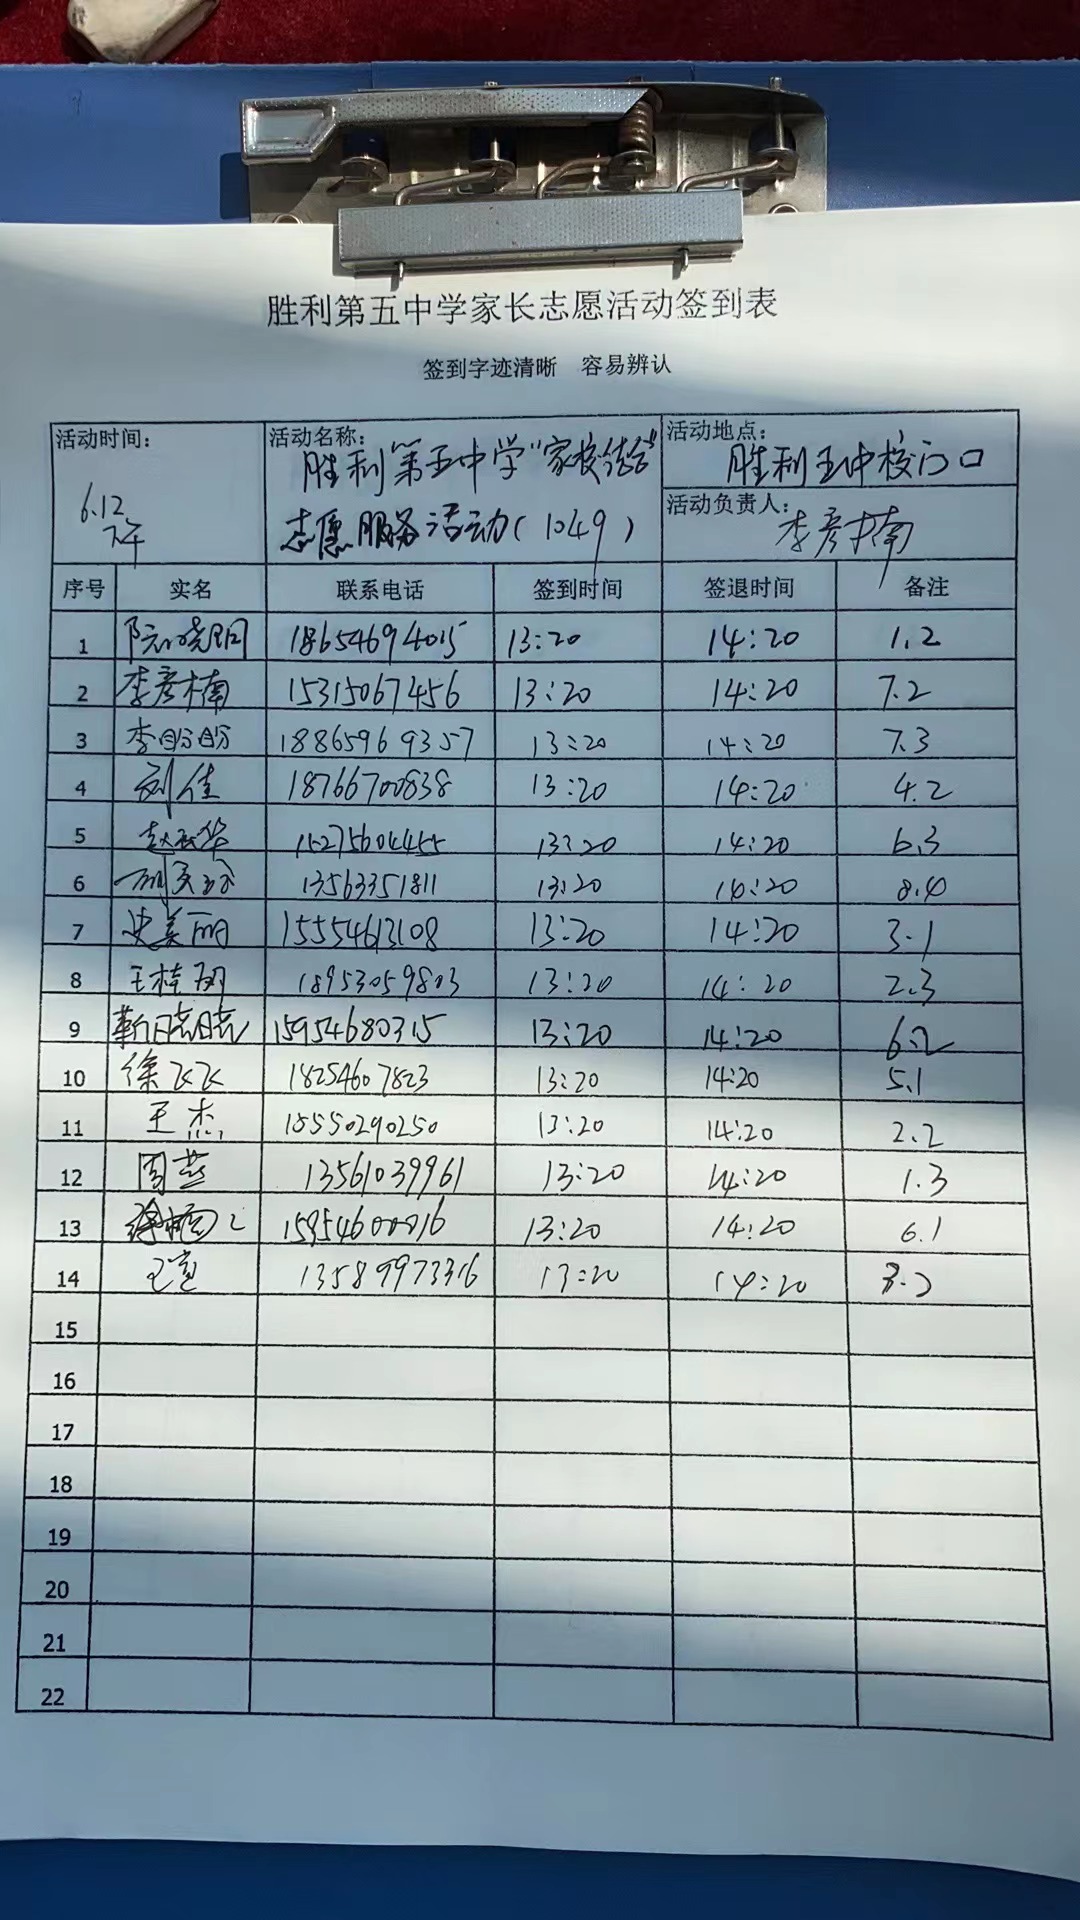 胜利第五中学家长志愿活动签到表
签到字迹清晰 容易辨认
活动时间: 6.12 下午
活动名称: 胜利第五中学“家校结合”
志愿服务活动(1049)
活动地点: 胜利五中校门口
活动负责人: 李彦楠
序号 实名 联系电话 签到时间 签退时间 备注
1 陈晓明 18654694015 13:20 14:20 1.2
2 李彦楠 15315067456 13:20 14:20 7.2
3 李盼盼 18865969357 13:20 14:20 7.3
4 刘佳 18766700838 13:20 14:20 4.2
5 15275604455 13:20 14:20 6.3
6 13563351811 13:20 14:20 8.4
7 史美丽 15554613108 13:20 14:20 3.1
8 王桂朋 18953059803 13:20 14:20 2.3
9 靳晓晓 15954680315 13:20 14:20 6.2
10 徐飞飞 18254607823 13:20 14:20 5.1
11 王杰 18550290250 13:20 14:20 2.2
12 周燕 13561039961 13:20 14:20 1.3
13 15954600816 13:20 14:20 6.1
14 13589973316 13:20 14:20
15
16
17
18
19
20
21
22